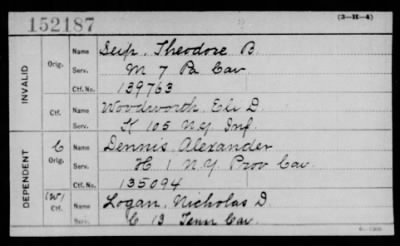 152187
(3—H—4)
INVALID
Orig.
Name Seip, Theodore B.
Serv. M 7 Pa Cav.
Ctf. No. 139763
Ctf.
Name Woodworth, Eli D.
Serv. K 105 N.Y. Inf.
DEPENDENT
C
Orig.
Name Dennis, Alexander
Serv. H 1 N.Y. Prov Cav.
Ctf. No. 135094
(W)
Ctf.
Name Logan, Nicholas D.
Serv. C 13 Tenn Cav.